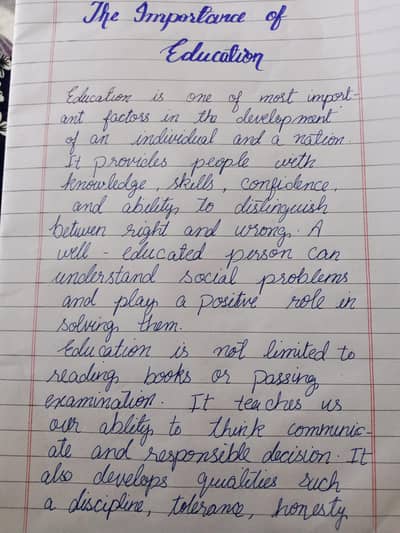 The Importance of
Education
Education is one of most import-
ant factors in the development
of an individual and a nation.
It provides people with
knowledge, skills, confidence,
and ability to distinguish
between right and wrong. A
well - educated person can
understand social problems
and play a positive role in
solving them.
Education is not limited to
reading books or passing
examination. It teaches us
our ability to think communic-
ate and responsible decision. It
also develops qualities such
a discipline, tolerance, honesty